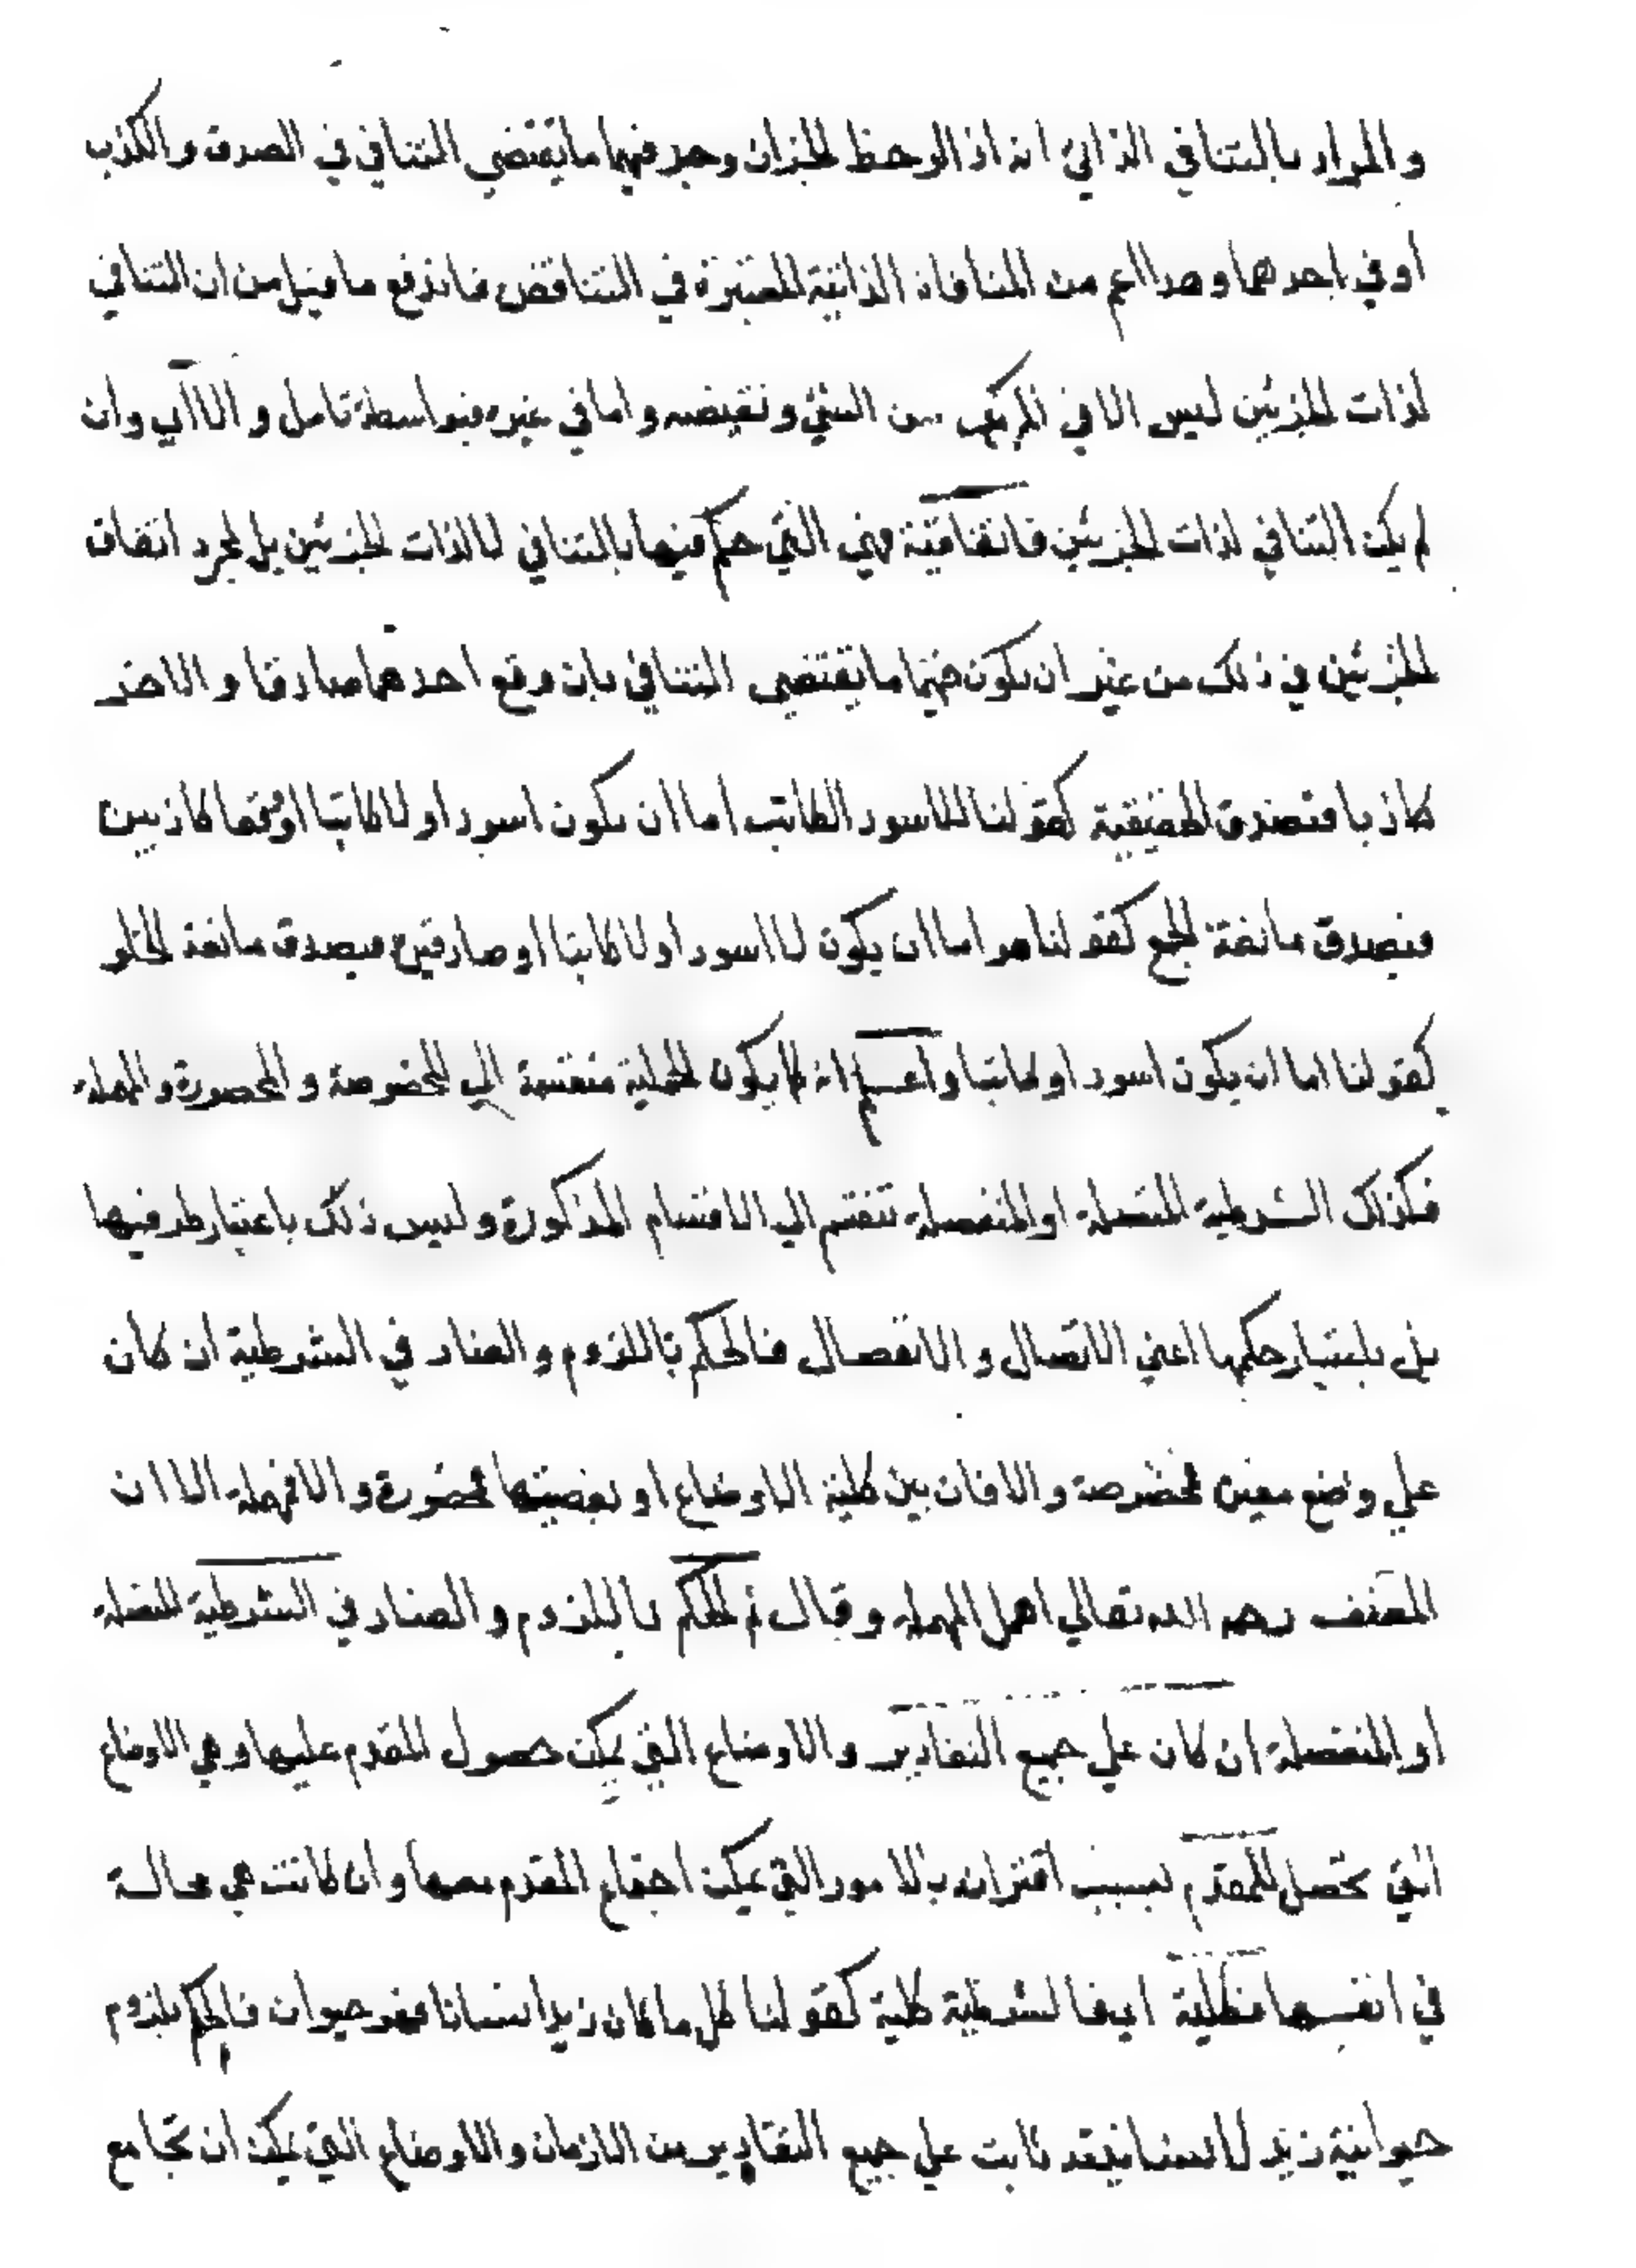 والمراد بالتنافي الذاتي انه اذا لوحظ الجزان وجد فيهما ما يقتضي التنافي في الصدق والكذب
او في احدهما وهذا اعم من المنافاة الذاتية المعتبرة في التناقض فاندفع ما قيل من ان التنافي
لذات الجزئين ليس الا في المركب من الشئ ونقيضه واما في غيره فبواسطة تامل والا اي وان
لم يكن التنافي لذات الجزئين فاتفاقية فهي التي حكم فيها بالتنافي لا لذات الجزئين بل لمجرد اتفاق
الجزئين في ذلك من غير ان يكون فيهما ما يقتضي التنافي بان وقع احدهما صادقا والاخر
كاذبا فتصدق الحقيقية كقولنا للاسود الكاتب اما ان يكون اسود او لا كاتبا او وقعا كاذبين
فيصدق مانعة الجمع كقولنا هو اما ان يكون لا اسود او لا كاتبا او صادقين فيصدق مانعة الخلو
كقولنا اما ان يكون اسود او كاتبا واعلم انه كما يكون الحملية منقسمة الي المخصوصة والمحصورة والمهملة
فكذلك الشرطية المتصلة او المنفصلة تنقسم الي الاقسام المذكورة وليس ذلك باعتبار طرفيها
بل باعتبار حكمها اعني الاتصال والانفصال فالحكم باللزوم والعناد في الشرطية ان كان
علي وضع معين مخصوصة والا فان بين كلية الاوضاع او بعضيتها محصورة والا فمهملة الا ان
المصنف رحمه الله تعالي اهمل المهملة وقال ثم الحكم باللزوم والعناد في الشرطية المتصلة
او المنفصلة ان كان علي جميع التقادير والاوضاع التي يمكن حصول المقدم عليها وهي الاوضاع
التي تحصل للمقدم بسبب اقترانه بالامور التي يمكن اجتماع المقدم معها وان كانت هي محالة
في انفسها فكلية اي فالشرطية كلية كقولنا كل ما كان زيد انسانا فهو حيوان فالحكم بلزوم
حيوانية زيد لانسانيته ثابت علي جميع التقادير من الازمان والاوضاع التي يمكن ان تجامع